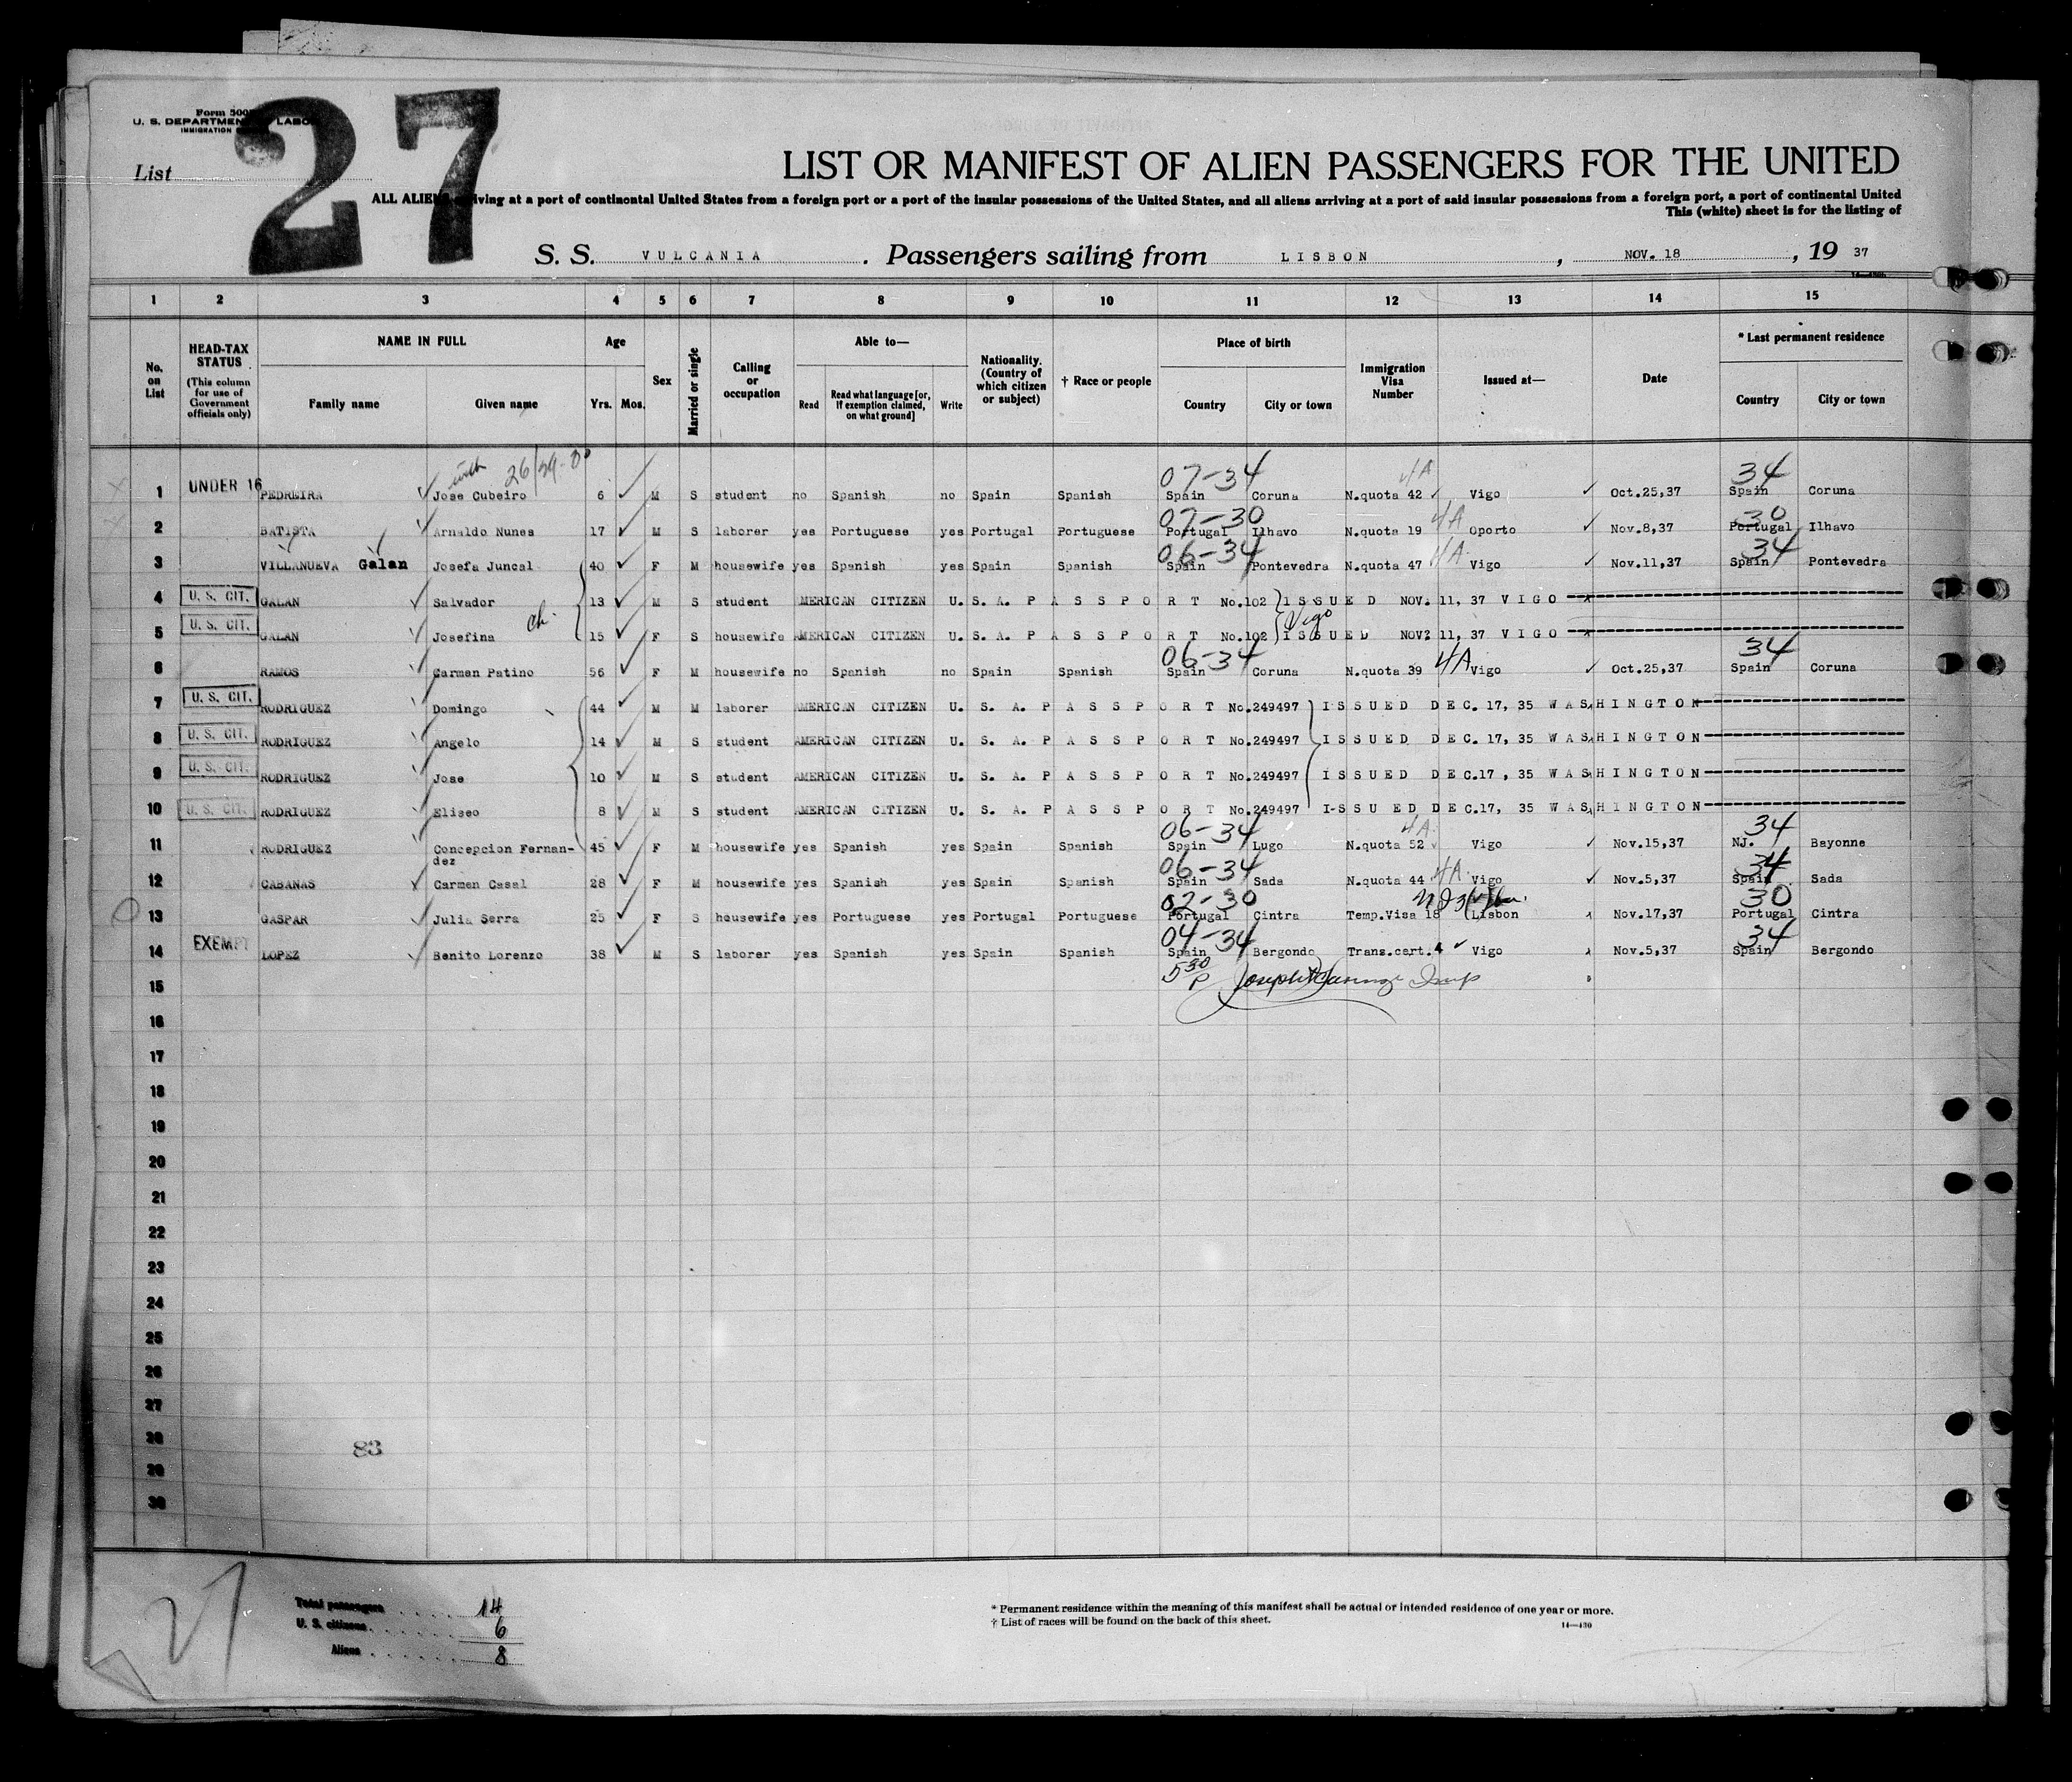 27
Form 500
U. S. DEPARTMENT LABOR
IMMIGRATION
List
LIST OR MANIFEST OF ALIEN PASSENGERS FOR THE UNITED
ALL ALIENS arriving at a port of continental United States from a foreign port or a port of the insular possessions of the United States, and all aliens arriving at a port of said insular possessions from a foreign port, a port of continental United
This (white) sheet is for the listing of
S. S. VULCANIA. Passengers sailing from LISBON, NOV. 18, 19 37
1 2 3 4 5 6 7 8 9 10 11 12 13 14 15
No. on List
HEAD-TAX STATUS (This column for use of Government officials only)
NAME IN FULL
Family name Given name
Age
Yrs. Mos.
Sex
Married or single
Calling or occupation
Able to—
Read Read what language [or, if exemption claimed, on what ground] Write
Nationality. (Country of which citizen or subject)
† Race or people
Place of birth
Country City or town
Immigration Visa Number
Issued at—
Date
* Last permanent residence
Country City or town
with 26/39-
07-34 4A 34
1 UNDER 16 PEDREIRA Jose Cubeiro 6 M S student no Spanish no Spain Spanish Spain Coruna N.quota 42 Vigo Oct.25,37 Spain Coruna
07-30 4A 30
2 BATISTA Arnaldo Nunes 17 M S laborer yes Portuguese yes Portugal Portuguese Portugal Ilhavo N.quota 19 Oporto Nov.8,37 Portugal Ilhavo
06-34 4A 34
3 VILLANUEVA Galan Josefa Juncal 40 F M housewife yes Spanish yes Spain Spanish Spain Pontevedra N.quota 47 Vigo Nov.11,37 Spain Pontevedra
4 U. S. CIT. GALAN Salvador 13 M S student AMERICAN CITIZEN U. S. A. PASSPORT No.102 ISSUED NOV. 11, 37 VIGO
ch. Vigo
5 U. S. CIT. GALAN Josefina 15 F S housewife AMERICAN CITIZEN U. S. A. PASSPORT No.102 ISSUED NOV. 11, 37 VIGO
06-34 4A 34
6 RAMOS Carmen Patino 56 F M housewife no Spanish no Spain Spanish Spain Coruna N.quota 39 Vigo Oct.25,37 Spain Coruna
7 U. S. CIT. RODRIGUEZ Domingo 44 M M laborer AMERICAN CITIZEN U. S. A. PASSPORT No.249497 ISSUED DEC. 17, 35 WASHINGTON
8 U. S. CIT. RODRIGUEZ Angelo 14 M S student AMERICAN CITIZEN U. S. A. PASSPORT No.249497 ISSUED DEC. 17, 35 WASHINGTON
9 U. S. CIT. RODRIGUEZ Jose 10 M S student AMERICAN CITIZEN U. S. A. PASSPORT No.249497 ISSUED DEC.17, 35 WASHINGTON
10 U. S. CIT. RODRIGUEZ Eliseo 8 M S student AMERICAN CITIZEN U. S. A. PASSPORT No.249497 ISSUED DEC.17, 35 WASHINGTON
06-34 4A 34
11 RODRIGUEZ Concepcion Fernandez 45 F M housewife yes Spanish yes Spain Spanish Spain Lugo N.quota 52 Vigo Nov.15,37 NJ. Bayonne
06-34 4A 34
12 CABANAS Carmen Casal 28 F M housewife yes Spanish yes Spain Spanish Spain Sada N.quota 44 Vigo Nov.5,37 Spain Sada
02-30 30
13 GASPAR Julia Serra 25 F S housewife yes Portuguese yes Portugal Portuguese Portugal Cintra Temp.Visa 18 Lisbon Nov.17,37 Portugal Cintra
04-34 34
14 EXEMPT LOPEZ Benito Lorenzo 38 M S laborer yes Spanish yes Spain Spanish Spain Bergondo Trans.cert.4 Vigo Nov.5,37 Spain Bergondo
15 5 30 P Joseph Insp
16
17
18
19
20
21
22
23
24
25
26
27
28
29
30
83
27
Total passengers 14
U. S. citizens 6
Aliens 8
* Permanent residence within the meaning of this manifest shall be actual or intended residence of one year or more.
† List of races will be found on the back of this sheet.
14—430